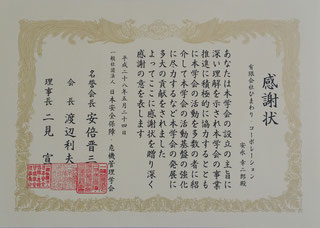 感謝状
有限会社ひまわり コーポレーション
安永 幸二郎 殿
あなたは本学会の設立の主旨に
深い理解を示され本学会の事業
推進に積極的に協力するととも
に本学会の活動を多数の者に紹
介して本学会の活動基盤の強化
に尽力するなど本学会の発展に
多大の貢献をされました
よってここに感謝状を贈り深く
感謝の意を表します
平成二十八年五月二十四日
一般社団法人 日本安全保障・危機管理学会
名誉会長 安倍晋三
会長 渡辺利夫
理事長 二見宣